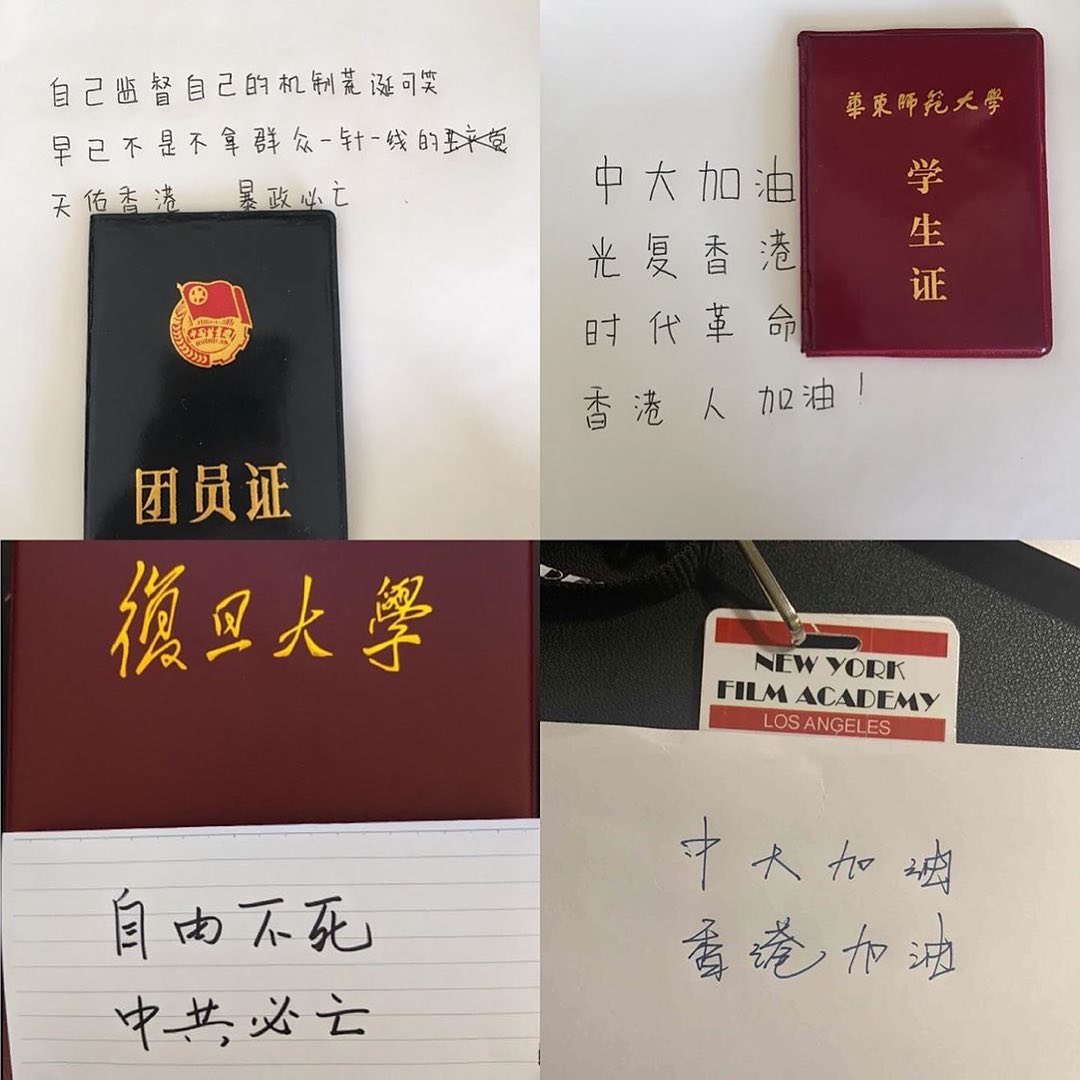 自己监督自己的机制荒诞可笑
早已不是不拿群众一针一线的
天佑香港 暴政必亡
团员证
華東师范大學
学生证
中大加油
光复香港
时代革命
香港人加油！
復旦大學
自由不死
中共必亡
NEW YORK
FILM ACADEMY
LOS ANGELES
中大加油
香港加油